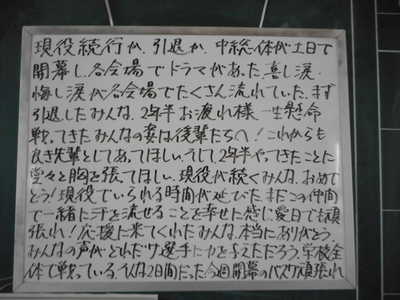 現役続行か、引退か、中総体が土日で
開幕し、各会場でドラマがあった。喜し涙
悔し涙が各会場でたくさん流れていた。まず
引退したみんな、2年半お疲れ様。一生懸命
戦ってきたみんなの姿は後輩たちへ!これからも
良き先輩としてあってほしい。そして、2年半やってきたことに
堂々と胸を張ってほしい。現役が続くみんな、おめで
とう!現役でいられる時間が延びた。まだこの仲間
で一緒に汗を流せることを幸せに感じ愛日でも頑
張れ!応援に来てくれたみんな、本当にありがとう。
みんなの声がどれだけ選手に力を与えただろう。学校全
体で戦っている、そんな2日間だった。今週開幕のバスケ頑張れ